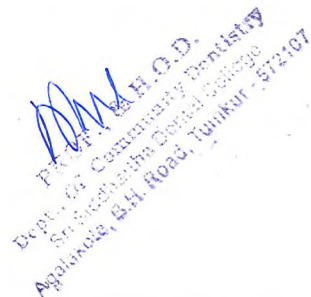 PROF. & H.O.D.
Dept. Of Community Dentistry
Sri Siddhartha Dental College
Agalakote, B.H. Road, Tumkur - 572107